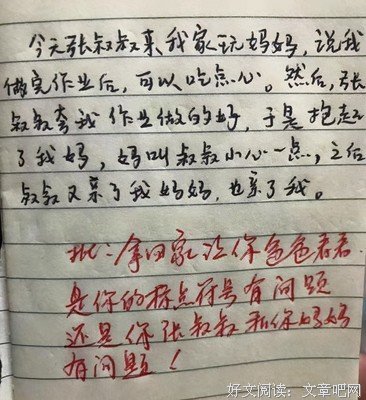 今天张叔叔来我家玩妈妈，说我
做完作业后，可以吃点心。然后，张
叔叔夸我作业做的好，于是抱起
了我妈，妈叫叔叔小心一点，之后
叔叔又亲了我妈妈，也亲了我。
批：拿回家让你爸爸看看，
是你的标点符号有问题
还是你张叔叔和你妈妈
有问题！
好文阅读：文章吧网